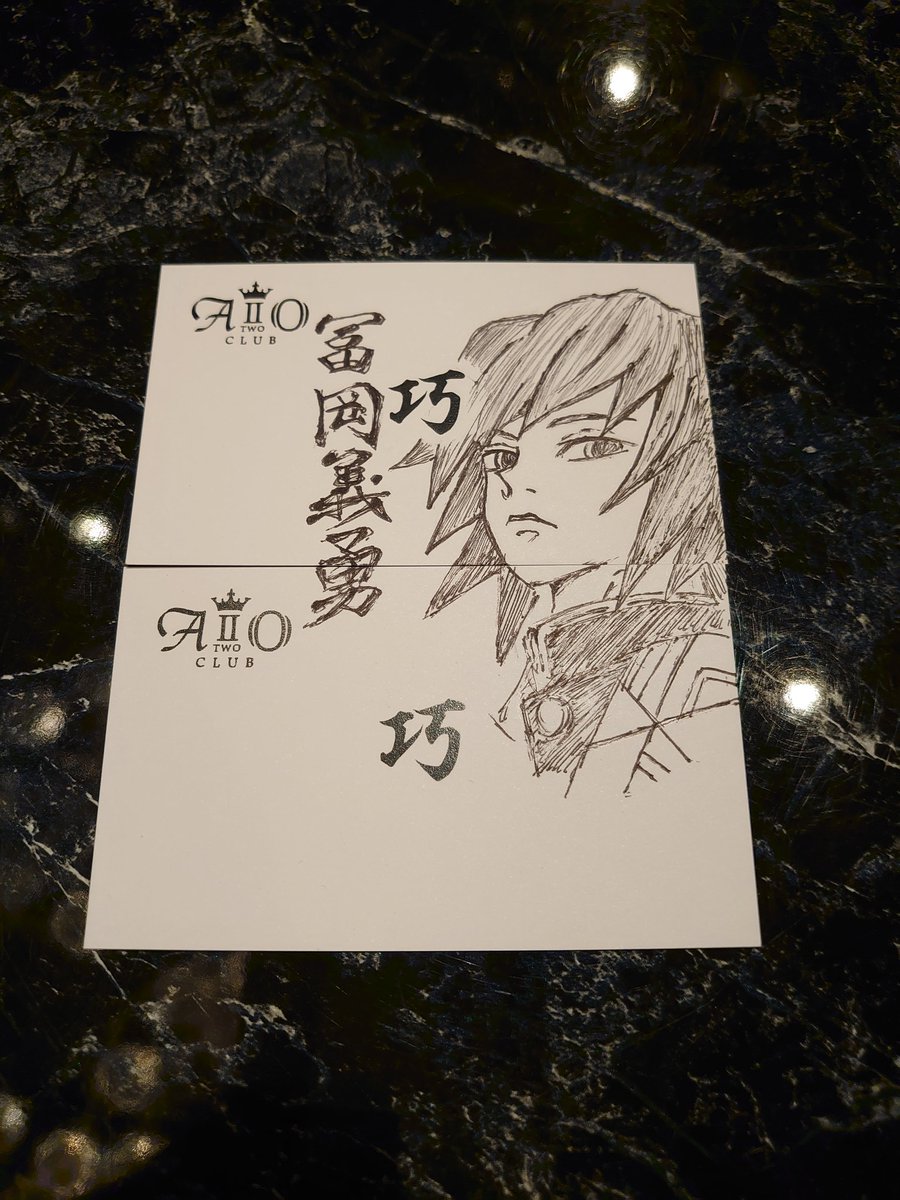 AIIO
TWO
CLUB
冨岡義勇
巧
AIIO
TWO
CLUB
巧